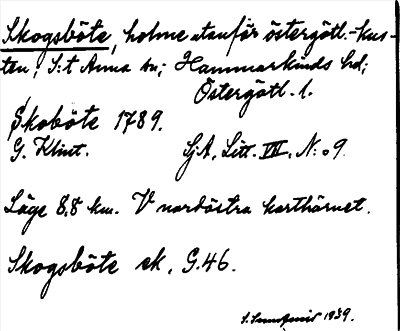 Skogsböte, holme utanför östergötl.-kus-
ten; S:t Anna sn; Hammarkinds hd;
Östergötl. l.
Skoböte 1789.
G. Klint. SjA, Litt. VII, N:o 9
Läge 8,8 km. V nordöstra karthörnet.
Skogsböte ek. G.46.
1939.